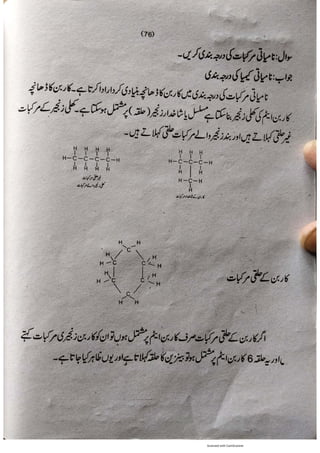 (76)
سوال: نامیاتی مرکبات کی درجہ بندی کریں۔
جواب: نامیاتی کیمیا کی درجہ بندی
نامیاتی مرکبات کی درجہ بندی میں کاربن کا ڈھانچہ بنیادی کردار ادا کرتا ہے۔ کاربن کا ڈھانچہ
کاربن ایٹم کی کھلی زنجیر بنا سکتا ہے مسلسل یا شاخدار زنجیر (حلقہ) پر مشتمل ہو سکتا ہے۔ کھلی زنجیر کے مرکبات
غیر حلقی کہلاتے ہیں اور بند زنجیر والے مرکبات حلقی کہلاتے ہیں۔
H H H H
H-C-C-C-C-H
H H H H
H H H
H-C-C-C-H
H H
H-C-H
H
کاربن کے حلقی مرکبات
اگر کاربن کے حلقی مرکبات صرف کاربن ایٹم پر مشتمل ہوں تو ان کو کاربن زنجیری مرکبات کہتے
اور یہ حلقہ 6 کاربن ایٹم پر مشتمل ہو تو بینزین کا حلقہ کہلاتا ہے اور یوں ظاہر کیا جاتا ہے۔
Scanned with CamScanner